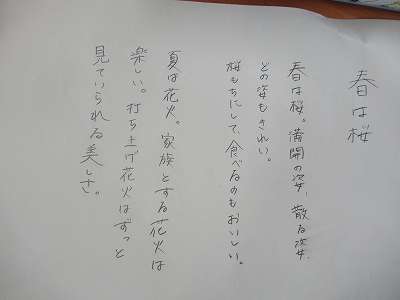 春は桜
春は桜。満開の姿、散る姿、
どの姿もきれい。
桜もちにして、食べるのもおいしい。
夏は花火。家族とする花火は
楽しい。打ち上げ花火はずっと
見ていられる美しさ。